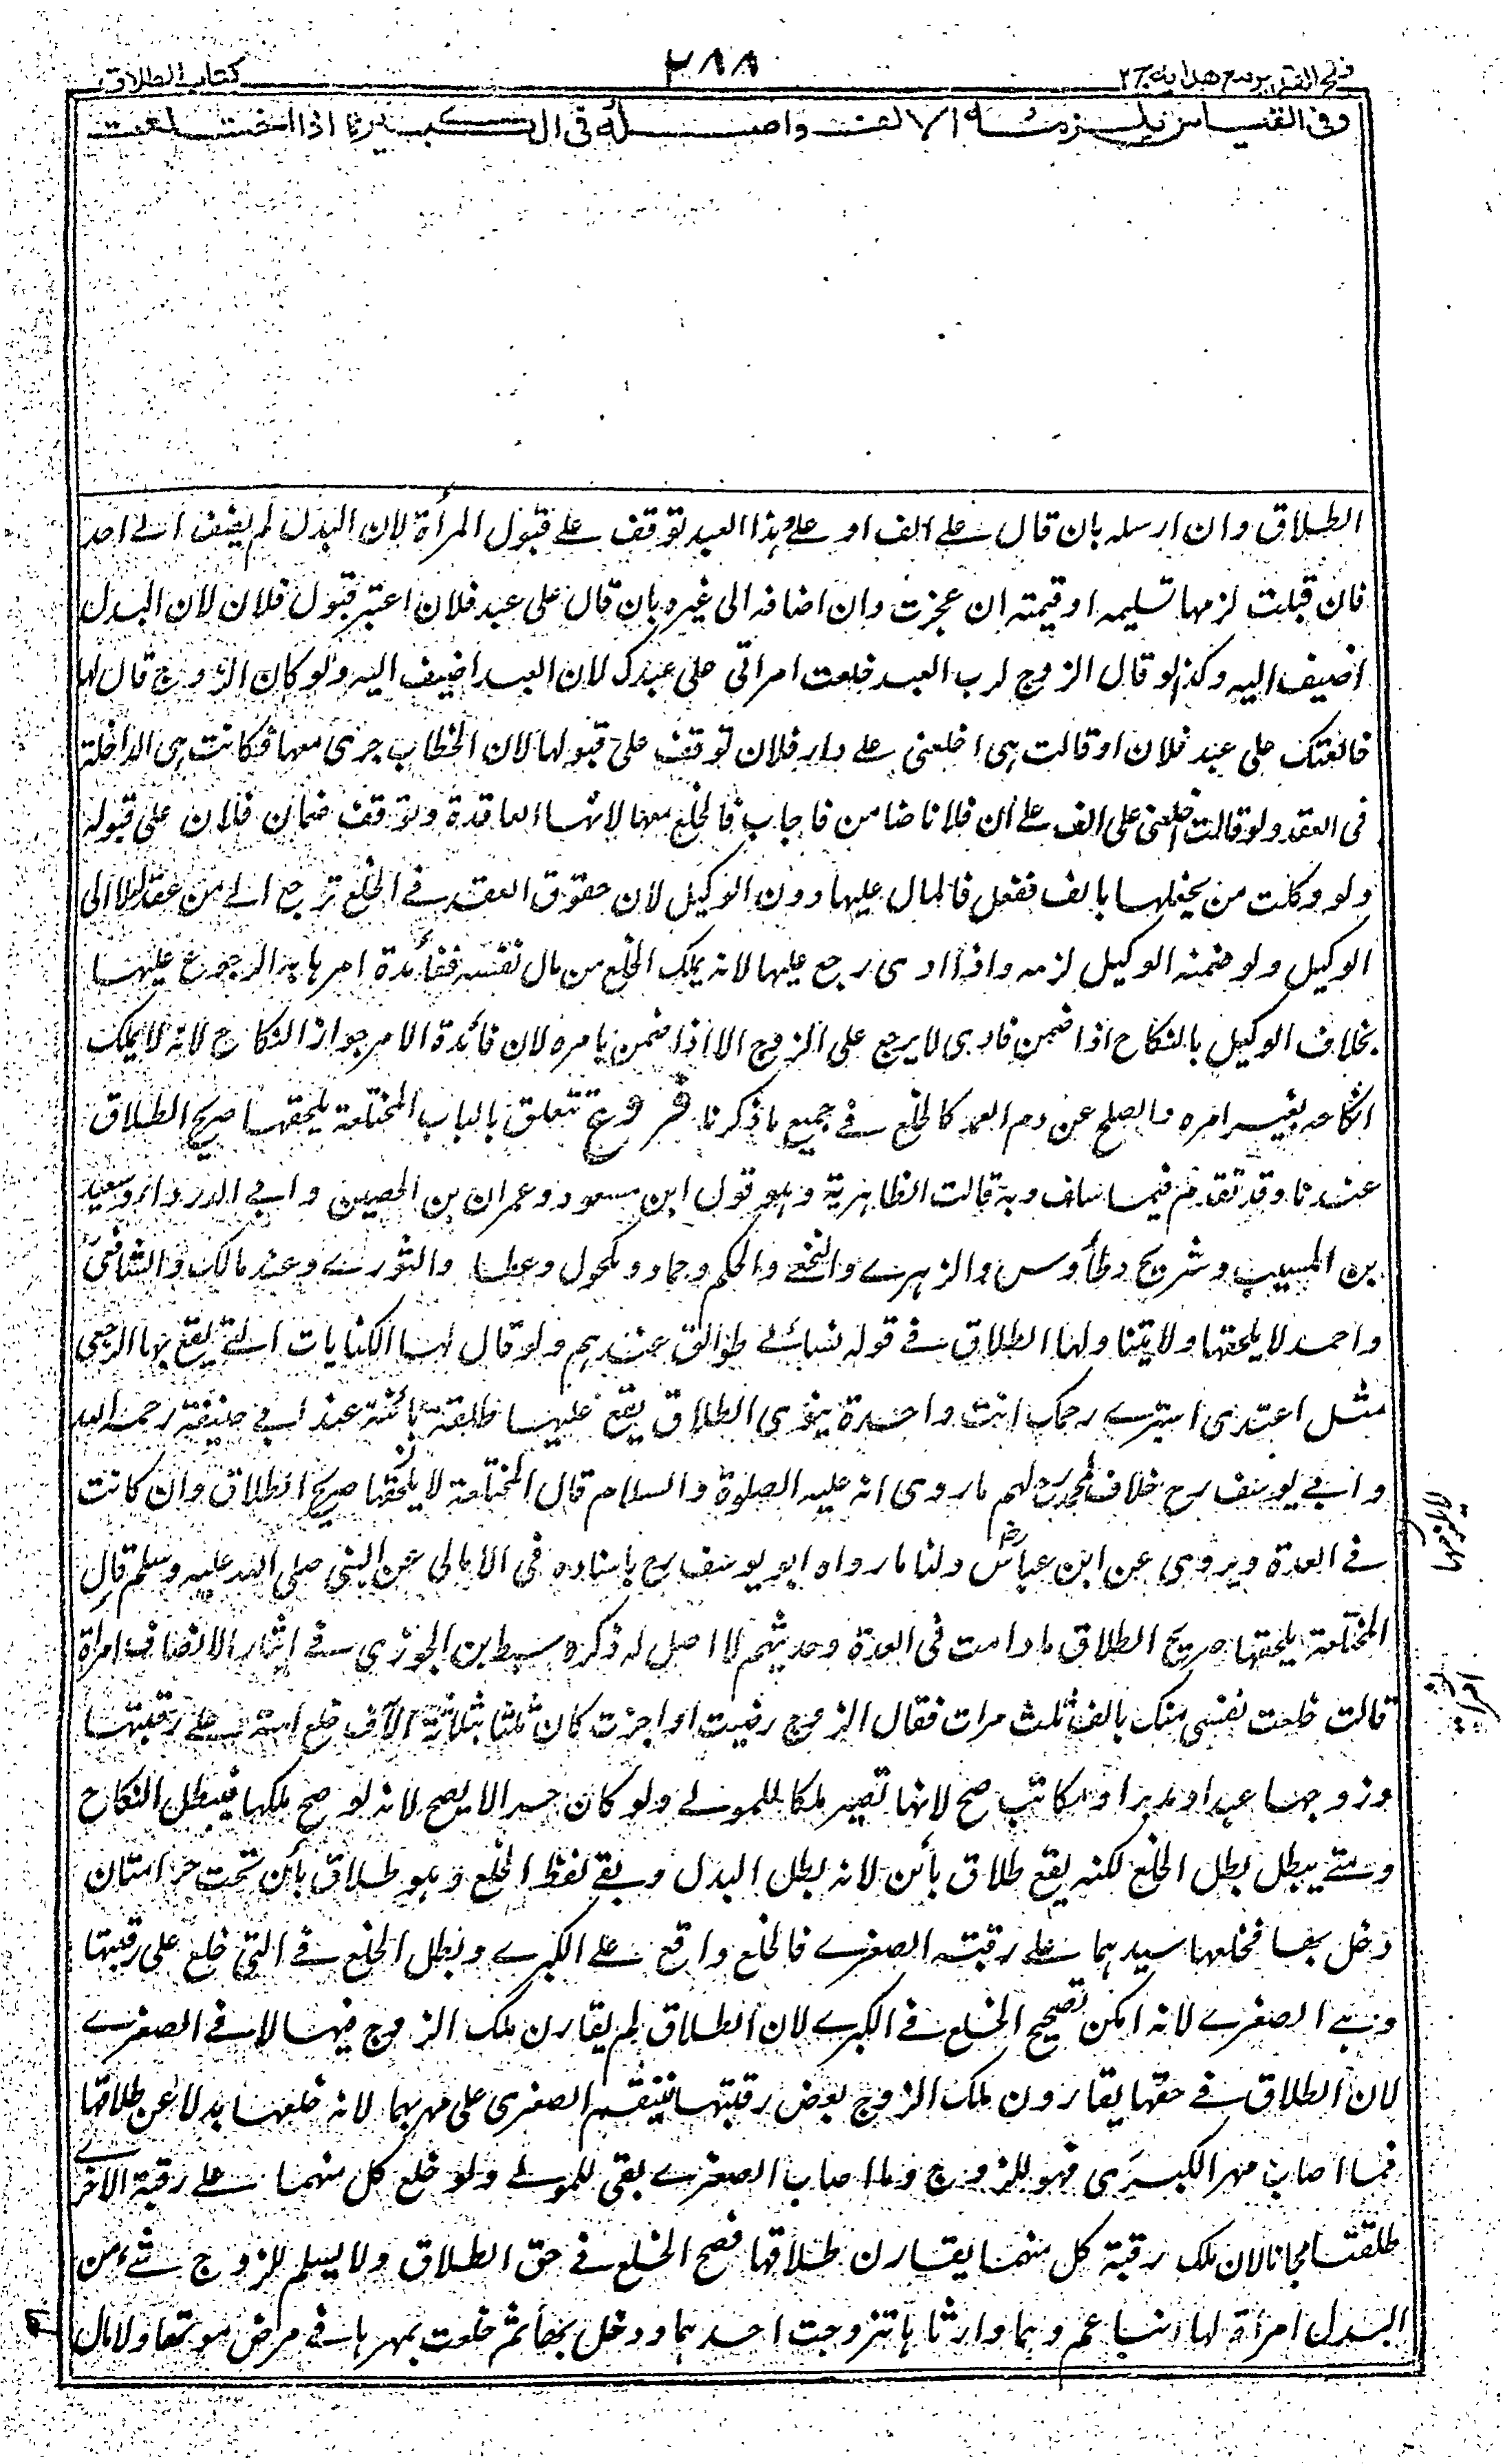 فتح القدير مع هدايه ج ٢
٢٨٨
كتاب الطلاق
وفى القياس يلزمه الالف واصله فى الكبيرة اذا اختلعت
الطلاق وان ارسله بان قال على الف او على هذا العبد توقف على قبول المرأة لان البدل لم يضف الى احد
فان قبلت لزمها تسليمه او قيمته ان عجزت وان اضافه الى غيره بان قال على عبد فلان اعتبر قبول فلان لان البدل
اضيف اليه وكذا لو قال الزوج لرب العبد خلعت امراتى على عبدك لان العبد اضيف اليه ولو كان الزوج قال لها
خالعتك على عبد فلان او قالت هى اخلعنى على دار فلان توقف على قبولها لان الخطاب جرى معها فكانت هى الداخلة
فى العقد ولو قالت اخلعنى على الف على ان فلانا ضامن فاجاب فالخلع معها لانها العاقدة وتوقف ضمان فلان على قبوله
ولو وكلت من يخلعها بالف ففعل فالمال عليها دون الوكيل لان حقوق العقد فى الخلع ترجع الى من عقد له لا الى
الوكيل ولو ضمنه الوكيل لزمه واذا ادى رجع عليها لانه يملك الخلع من مال نفسه ففائدة امرها به الرجوع عليها
بخلاف الوكيل بالنكاح اذا ضمن فادى لا يرجع على الزوج الا اذا ضمن بامره لان فائدة الامر جواز النكاح لانه لا يملك
انكاحه بغير امره والصلح عن دم العمد كالخلع فى جميع ما ذكرنا فروع تتعلق بالباب المختلعة يلحقها صريح الطلاق
عندنا وقد تقدم فيما سلف وبه قالت الظاهرية وهو قول ابن مسعود وعمران بن الحصين وابى الدرداء وسعيد
بن المسيب وشريح وطاؤس والزهرى والنخعى والحكم وحماد ومكحول وعطاء والثورى وعند مالك والشافعى
واحمد لا يلحقها ولا يتناولها الطلاق فى قوله نسائى طوالق عندهم ولو قال لها الكنايات التى يقع بها الرجعى
مثل اعتدى استبرى رحمك انت واحدة ينوى الطلاق يقع عليها طلقة بائنة عند ابى حنيفة رحمه الله
وابى يوسف رح خلافا لمحمد رح لهم ما روى انه عليه الصلوة والسلام قال المختلعة لا يلحقها صريح الطلاق وان كانت
فى العدة ويروى عن ابن عباس رض ولنا ما رواه ابو يوسف رح باسناده فى الامالى عن النبى صلى الله عليه وسلم قال
المختلعة يلحقها صريح الطلاق ما دامت فى العدة وحديثهم لا اصل له ذكره سبط ابن الجوزى فى ايثار الانصاف امرأة
قالت خلعت نفسى منك بالف ثلث مرات فقال الزوج رضيت او اجزت كان ثلثا بثلاثة الآف خلع امته على رقبتها
وزوجها عبد او مدبر او مكاتب صح لانها تصير ملكا للمولى ولو كان حرا لا يصح لانه لو صح ملكها فيبطل النكاح
ومتى يبطل بطل الخلع لكنه يقع طلاق بائن لانه بطل البدل وبقى لفظ الخلع وهو طلاق بائن تحت حر امتان
دخل بهما فخلعها سيدهما على رقبة الصغرى فالخلع واقع على الكبرى وبطل الخلع فى التى خلع على رقبتها
وهى الصغرى لانه امكن تصحيح الخلع فى الكبرى لان الطلاق لم يقارن ملك الزوج فيها لا فى الصغرى
لان الطلاق فى حقها يقارون ملك الزوج بعض رقبتها فينقسم الصغرى على مهريهما لانه خلعها بدلا عن طلاقها
فما اصاب مهر الكبرى فهو للزوج وما اصاب الصغرى بقى للمولى ولو خلع كل منهما على رقبة الاخرى
طلقتا مجانا لان ملك رقبة كل منهما يقارن طلاقها فصح الخلع فى حق الطلاق ولا يسلم للزوج شئ من
البدل امرأة لها ابنا عم وهما وارثاها تزوجت احدهما ودخل بها ثم خلعت بمهرها فى مرض موتها ولا مال